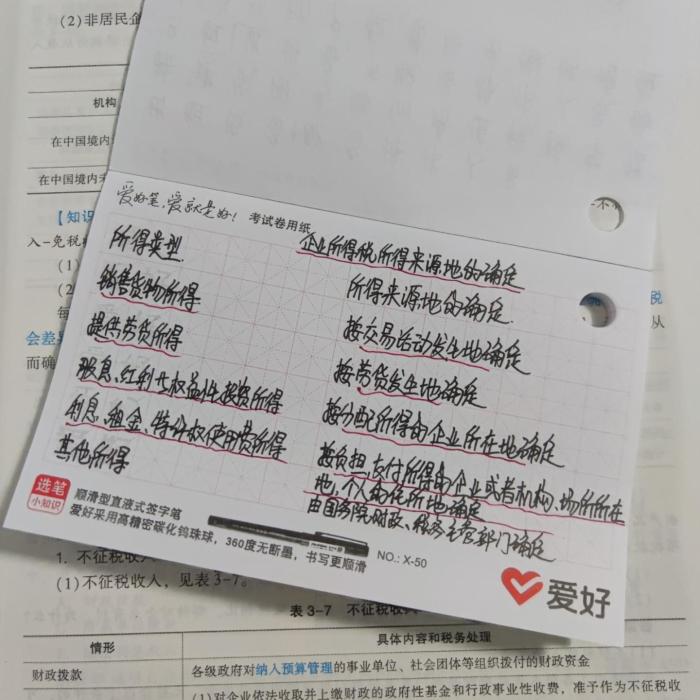 (2)非居民企
机构
在中国境内
在中国境内未
【知识
入-免税
(1)
(2
每
会差异
而确
税
从
爱好笔,爱就是好! 考试卷用纸
企业所得税所得来源地的确定
所得类型 所得来源地的确定
销售货物所得 按交易活动发生地确定
提供劳货所得 按劳货发生地确定
股息、红利等权益性投资所得 按分配所得的企业所在地确定
利息、租金、特许权使用费所得 按负担、支付所得的企业或者机构、场所所在
地,个人的住所地确定
其他所得 由国务院财政、税务主管部门确定
选笔
小知识
顺滑型直液式签字笔
爱好采用高精密碳化钨珠球,360度无断墨,书写更顺滑
NO.: X-50
爱好
1. 不征税收入
(1)不征税收入,见表3-7。
表3-7 不征税收
情形 具体内容和税务处理
财政拨款 各级政府对纳入预算管理的事业单位、社会团体等组织拨付的财政资金
(1)对企业依法收取并上缴财政的政府性基金和行政事业性收费,准予作为不征税收